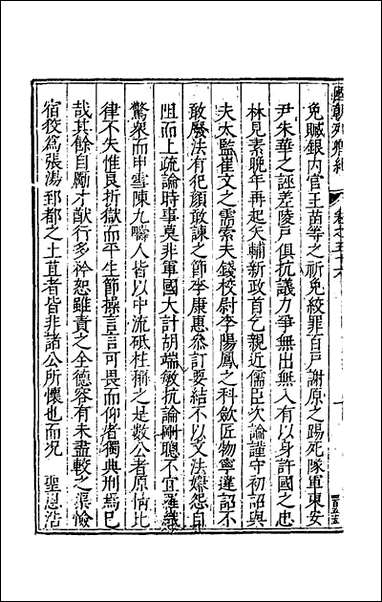 國朝列卿紀 卷之五十六
免贓銀内官王苗等之祈免絞罪百戸謝原之踢死隊軍東安
尹朱華之誣差陵戸俱抗議力爭無出無入有以身許國之忠
林見素晚年再起矢輔新政首乞親近儒臣次論謹守初詔與
夫太監崔文之需索夫錢校尉李陽鳳之科歛匠物寧違詔不
敢廢法有犯顔敢諫之節李康惠叅訂要結不以文法嫌怨自
阻而上疏論時事莫非軍國大計胡端敏抗論剛聽不宜羅織
驚衆而申雪陳九疇人皆以中流砥柱稱之是數公者原情比
律不失惟良折獄而平生節操言言可畏而仰者獨典刑焉巳
哉其餘自勵才猷行多衿恕雖責之全德容有未盡較之深憸
宿狡爲張湯郅都之土苴者皆非諸公所懷也而况 聖恩浩